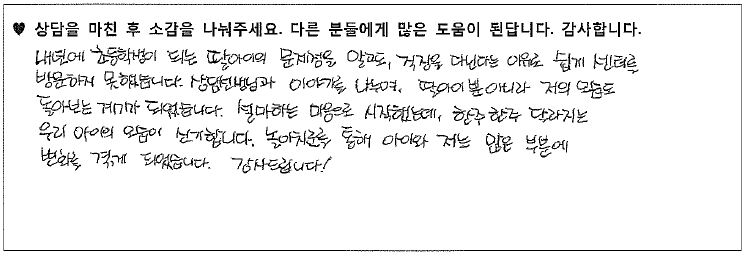 ♥ 상담을 마친 후 소감을 나눠주세요. 다른 분들에게 많은 도움이 된답니다. 감사합니다.
내년에 초등학생이 되는 딸아이의 문제점을 알고도, 직장을 다닌다는 이유로 쉽게 센터를
방문하지 못했습니다. 상담선생님과 이야기를 나누며, 딸아이뿐아니라 저의 모습도
돌아보는 계기가 되었습니다. 설마하는 마음으로 시작했는데, 한주한주 달라지는
우리 아이의 모습이 신기합니다. 놀이치료를 통해 아이와 저는 많은 부분에
변화를 겪게 되었습니다. 감사드립니다!